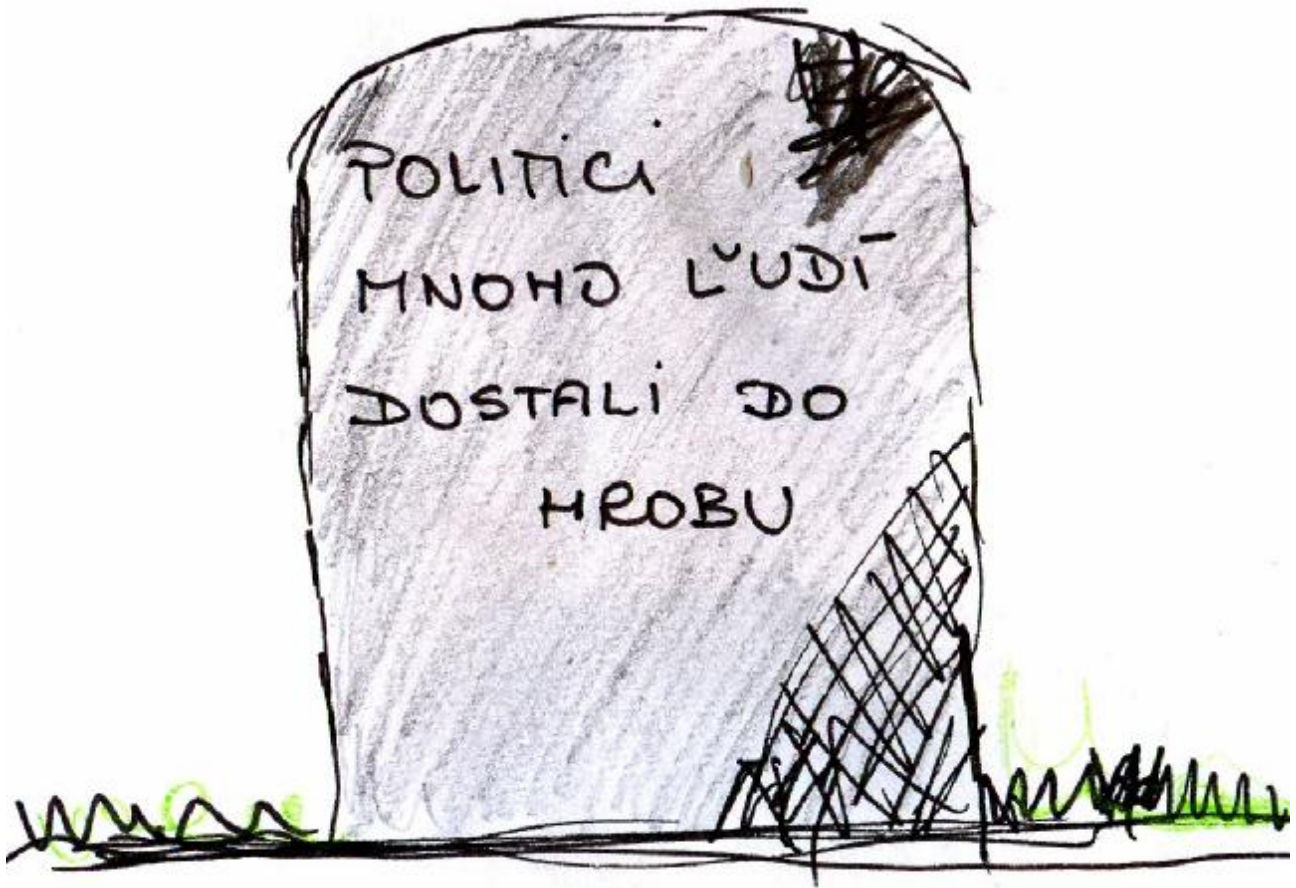 POLITICI
MNOHO ĽUDÍ
DOSTALI DO
HROBU